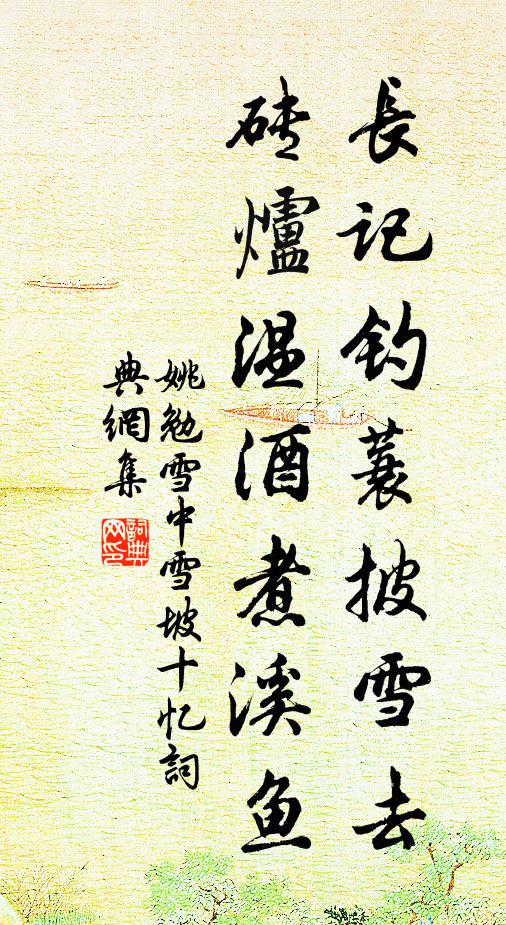 長记釣蓑披雪去
砖爐温酒煮溪魚
姚勉雪中雪坡十忆詞
典網集
詞典
网印